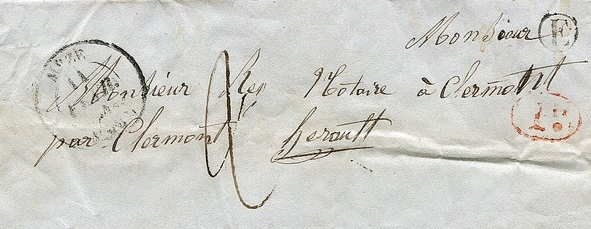 Monsieur E
Monsieur Rey Notaire à Clermont
par Clermont 2
herault